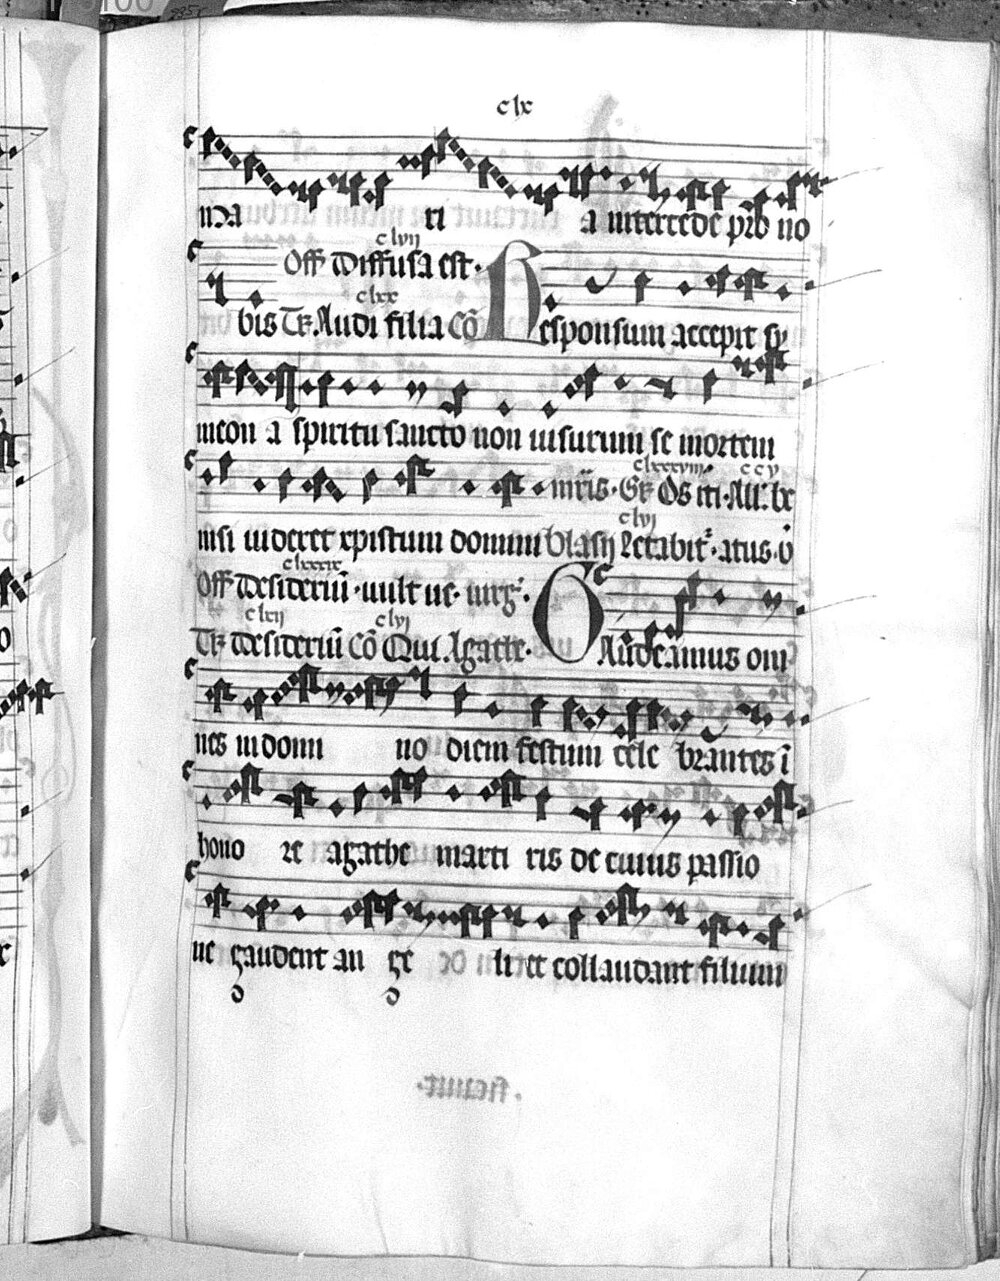 clx
ma ri a intercede pro no
clvij
Off Diffusa est.
clxx
bis Tr. Audi filia Cō Responsum accepit sy
meon a spiritu sancto non uisurum se mortem
clxxxviij ccv
mris. Gr Os iti. All'. bc
clvj
nisi uideret xpistum domini blasij Letabit'. atus. v
clxxxix
Off Desideriū. uult ue. uirg'.
clxij clvj
Tr Desideriū Cō Qui. Agathe. GAudeamus om
nes in domi no diem festum cele brantes ī
hono re agathe marti ris de cuius passio
ne gaudent an ge li et collaudant filium